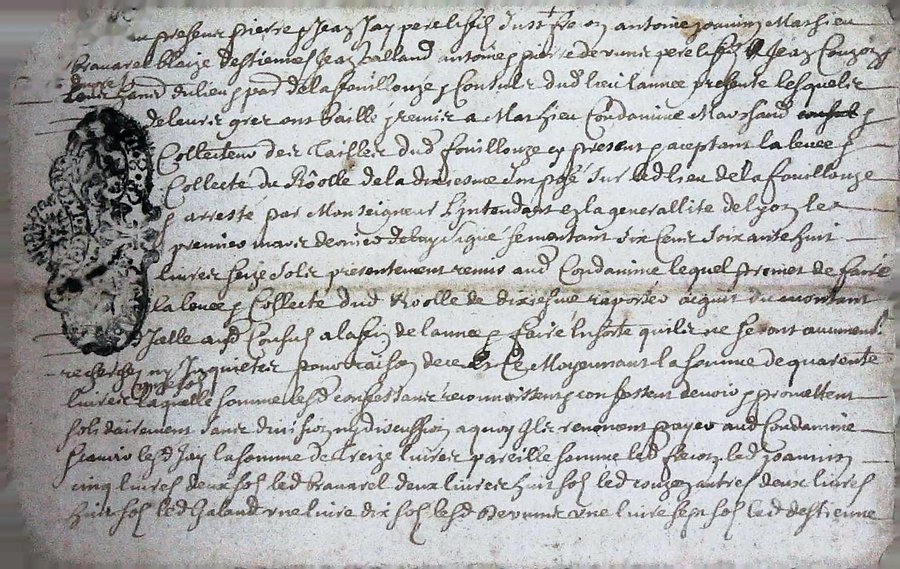 presens pierre & Jean Jay pere & fils Just fleon antoine joannin Mathieu
bravarel blaize destienne Jean balland antoine & pierre devune pere & fils & Jean Couzon
du lieu & par de la fouillouze & Consuls dud lieu lannee presente lesquels
de leurs gres ont baille premis a Mathieu Condamine Marchand consul &
Collecteur des Tailles dud fouillouze cy present & aceptant la levee &
Collecte du Roolle de la dixiesme impozé sur led lieu de la fouillouze
& arresté par Monseigneur Lintendant en la generallite de lyon le
premier mars dernier signé se montant six Cens soixante huit
livres seize sols presentement remis aud Condamine lequel promet de faire
la levee & Collecte dud Roolle de dixiesme raporter acquit du montant
dicelle aud Consuls a la fin de lannee & faire en sorte quils ne seront aucunement
recherches ny Inquietes pour raison de ce Moyennant la somme de quarente
livres onze sols laquelle somme lesd confessans reconnoissent & confessent devoir & promettent
solidairement sans division ny discussion a quoy ils renoncent payer aud Condamine
scavoir lesd Jay la somme de treize livres pareille somme led fleon led joannin
cinq livres deux sols led bravarel deux livres huit sols led couzon autres deux livres
huit sols led balland une livre dix sols lesd devune une livre sept sols led destienne